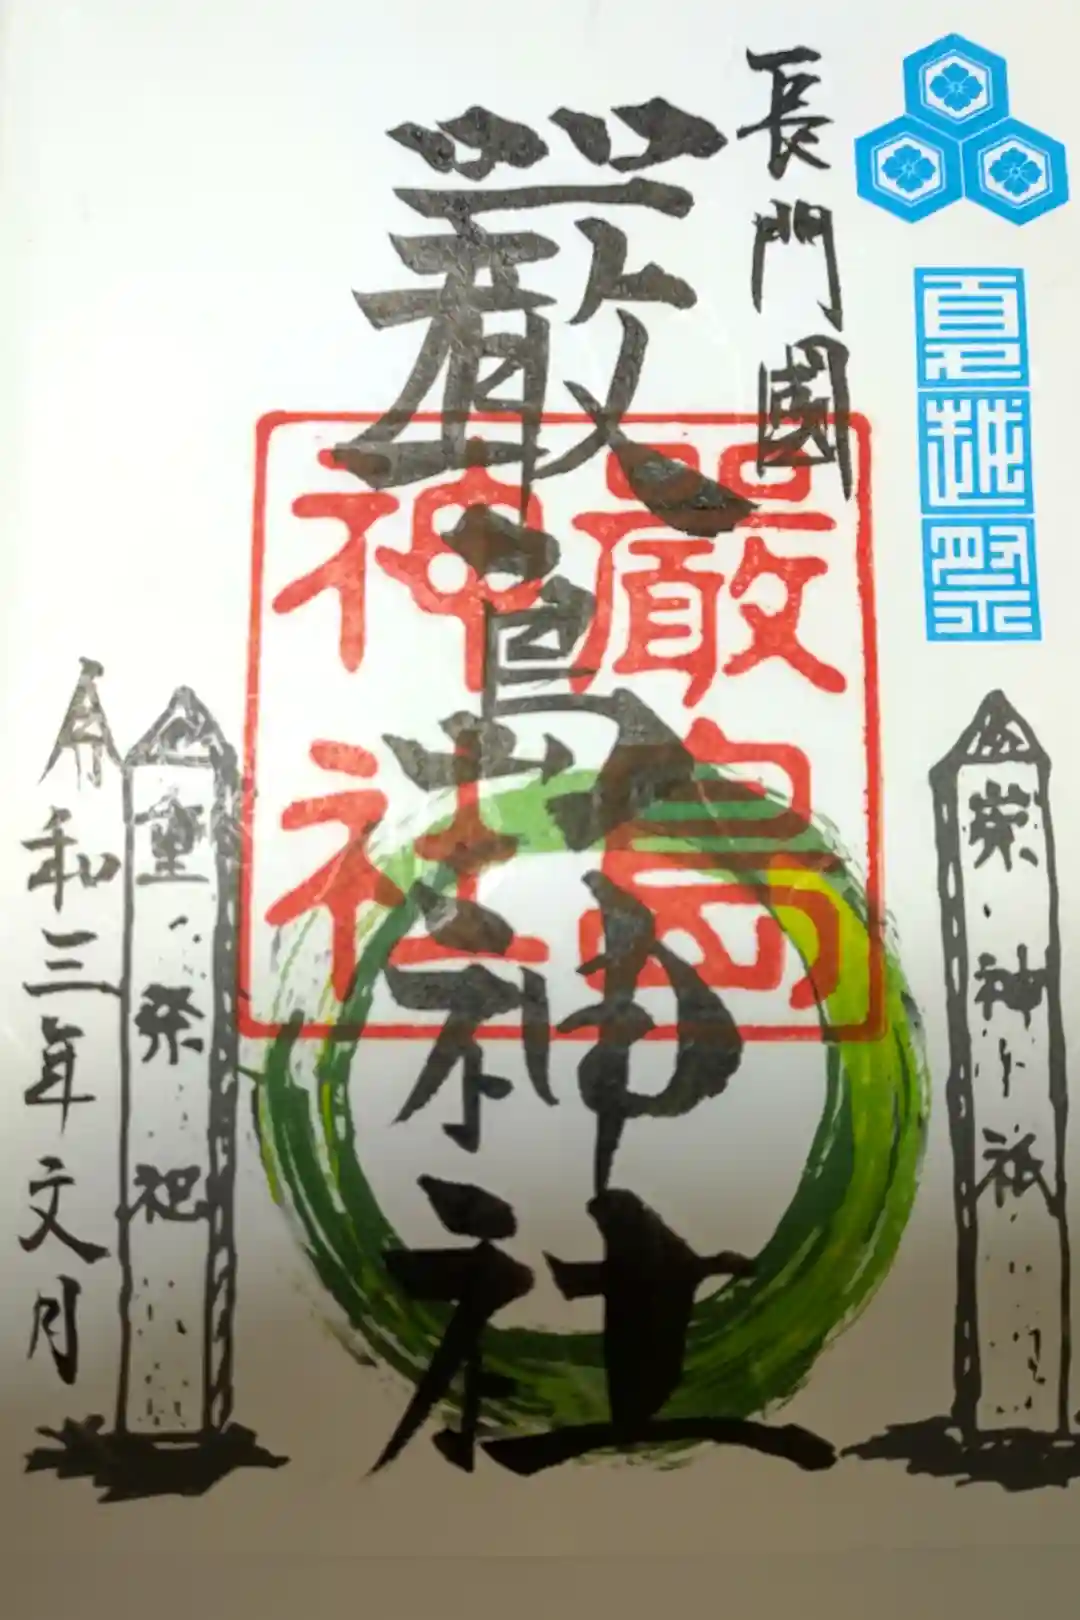 夏越祭
崇神祇
長門國
嚴島神社
嚴島
神社
重祭祀
令和三年文月